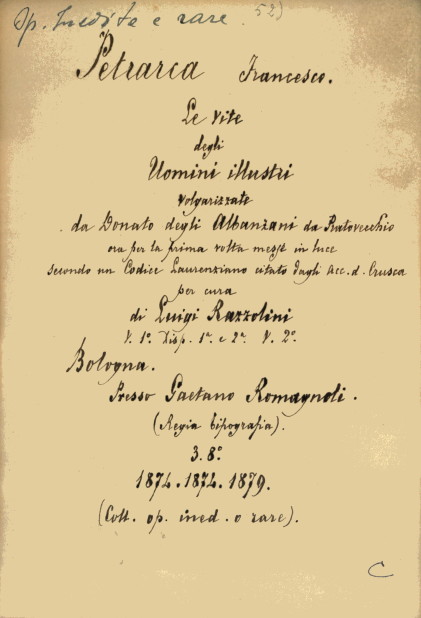 Op. Inedite e rare. 52)
Petrarca Francesco.
Le Vite
degli
Uomini illustri
volgarizzate
da Donato degli Albanzani da Pratovecchio
ora per la prima volta messe in luce
secondo un Codice Laurenziano citato dagli Acc. d. Crusca
per cura
di Luigi Razzolini
V. 1º. Disp. 1ª. e 2ª. V. 2º.
Bologna.
Presso Gaetano Romagnoli.
(Regia tipografia).
3. 8º.
1874. 1874. 1879.
(Coll. op. ined. o rare).
C